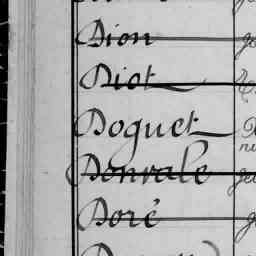 Dion
Diot
Doguet
Donvale
Doré